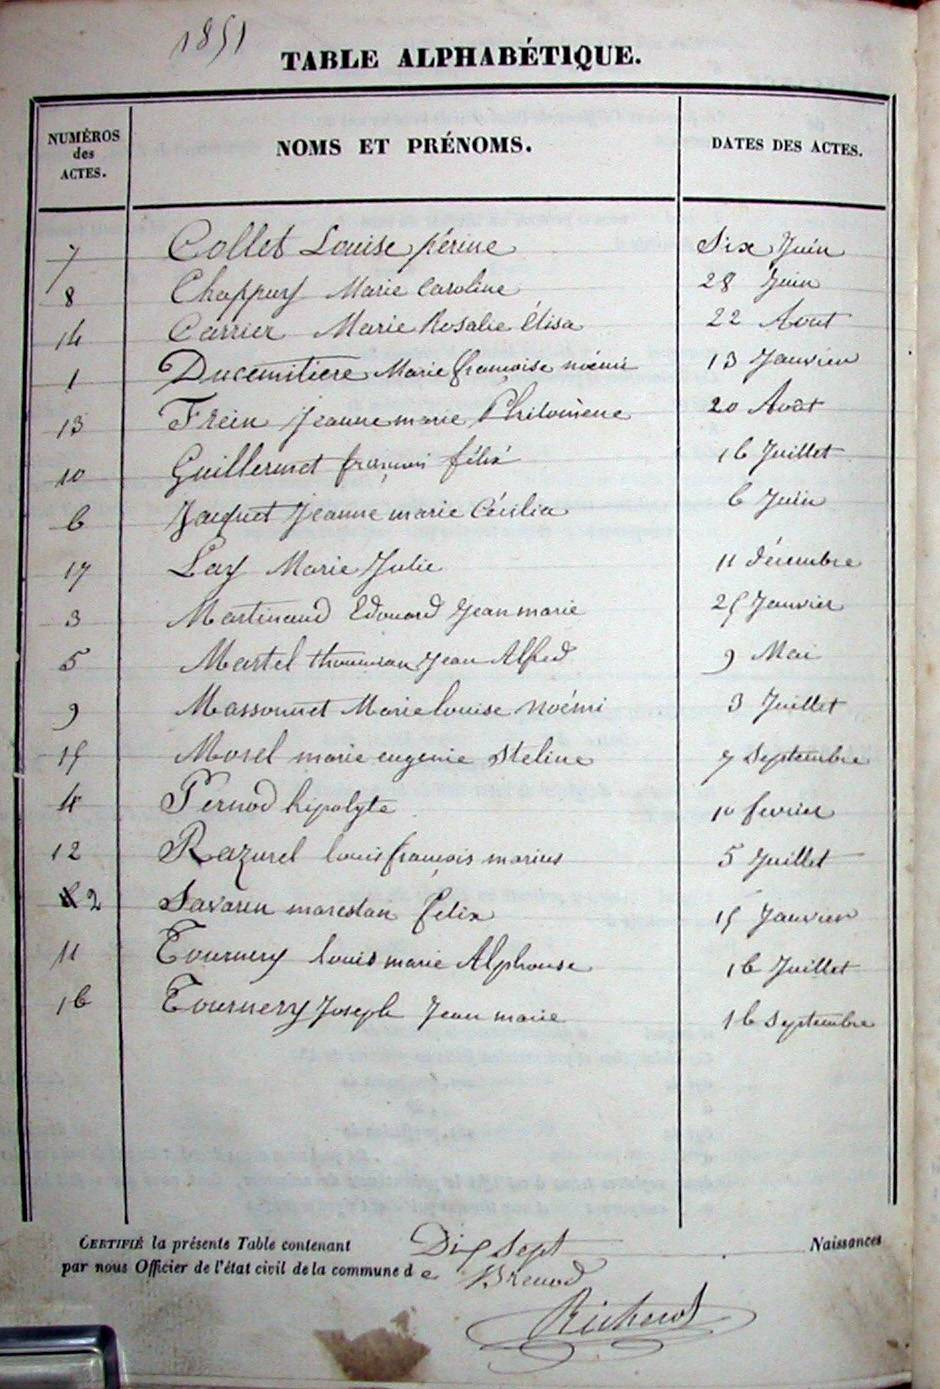 1851
TABLE ALPHABÉTIQUE.
NUMÉROS des ACTES. NOMS ET PRÉNOMS. DATES DES ACTES.
7 Collet Louise périne Six Juin
8 Chappuy Marie Caroline 28 Juin
14 Carrier Marie Rosalie Élisa 22 Aout
1 Ducemitiere Marie françoise noémi 13 Janvier
13 Frein Jeanne marie Philomène 20 Août
10 Guillermet françois félix 16 Juillet
6 Jaquet Jeanne marie Cécilia 6 Juin
17 Lay Marie Julie 11 décembre
3 Martinaud Edouard Jean marie 25 Janvier
5 Martel Jean Alfred 9 Mai
9 Massonnet Marie louise noémi 3 Juillet
15 Morel marie eugenie steline 7 septembre
4 Pernod hipolyte 10 fevrier
12 Razurel louis françois marius 5 Juillet
2 Savarin marestan felix 15 Janvier
11 Tournery louis marie Alphonse 16 Juillet
16 Tournery Joseph Jean marie 16 septembre
CERTIFIÉ la présente Table contenant Dix Sept Naissances
par nous Officier de l'état civil de la commune de Brenod
Richerot